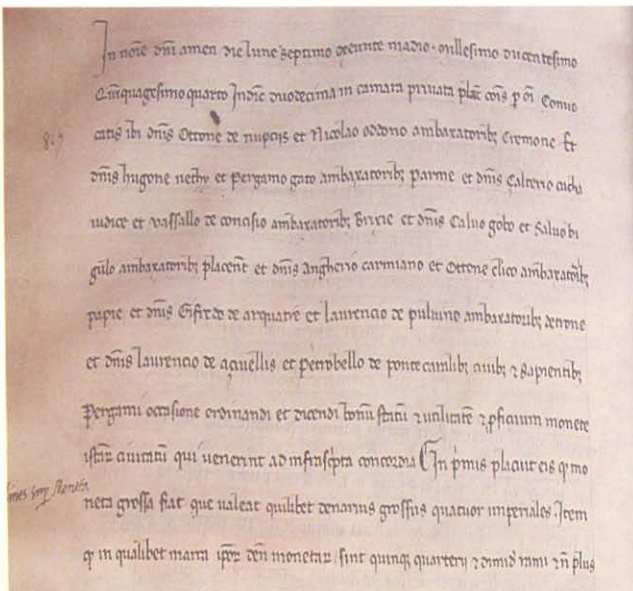 In noie dni amen die lune septimo exeunte madio . millesimo ducentesimo
Quinquagesimo quarto Indic duodecima in camara privata plac cois p oi Convo
catis ibi dnis Ottone de nupciis et Nicolao oddono ambaxatorib; Cremone Et
dnis hugone et Pergamo gato ambaxatorib; Parme et dnis Calterio
iudice et vassallo de concisio ambaxatorib; Brixie et dnis Calvo gobo et Salvo bi
gulo ambaxatorib; placent et dnis Angherio carmiano et Ottone clico ambaxatorib;
papie et dnis Gifredo de arquate et laurencio de pulvino ambaxatorib;
et dnis laurencio de et Petrobello de ponte caralib; civib; ⁊ sapientib;
Pergami occasione ordinandi et dicendi bonu statu ⁊ utilitate ⁊ pficium monete
istar civitatu qui venerint ad infrascpta concordia In pmis placuit eis qd mo
neta grossa fiat que valeat quilibet denarius grossus quatuor imperiales . Item
qd in qualibet marca ipor den monetar sint quinq; quarterii ⁊ dimid rami ⁊ n plus